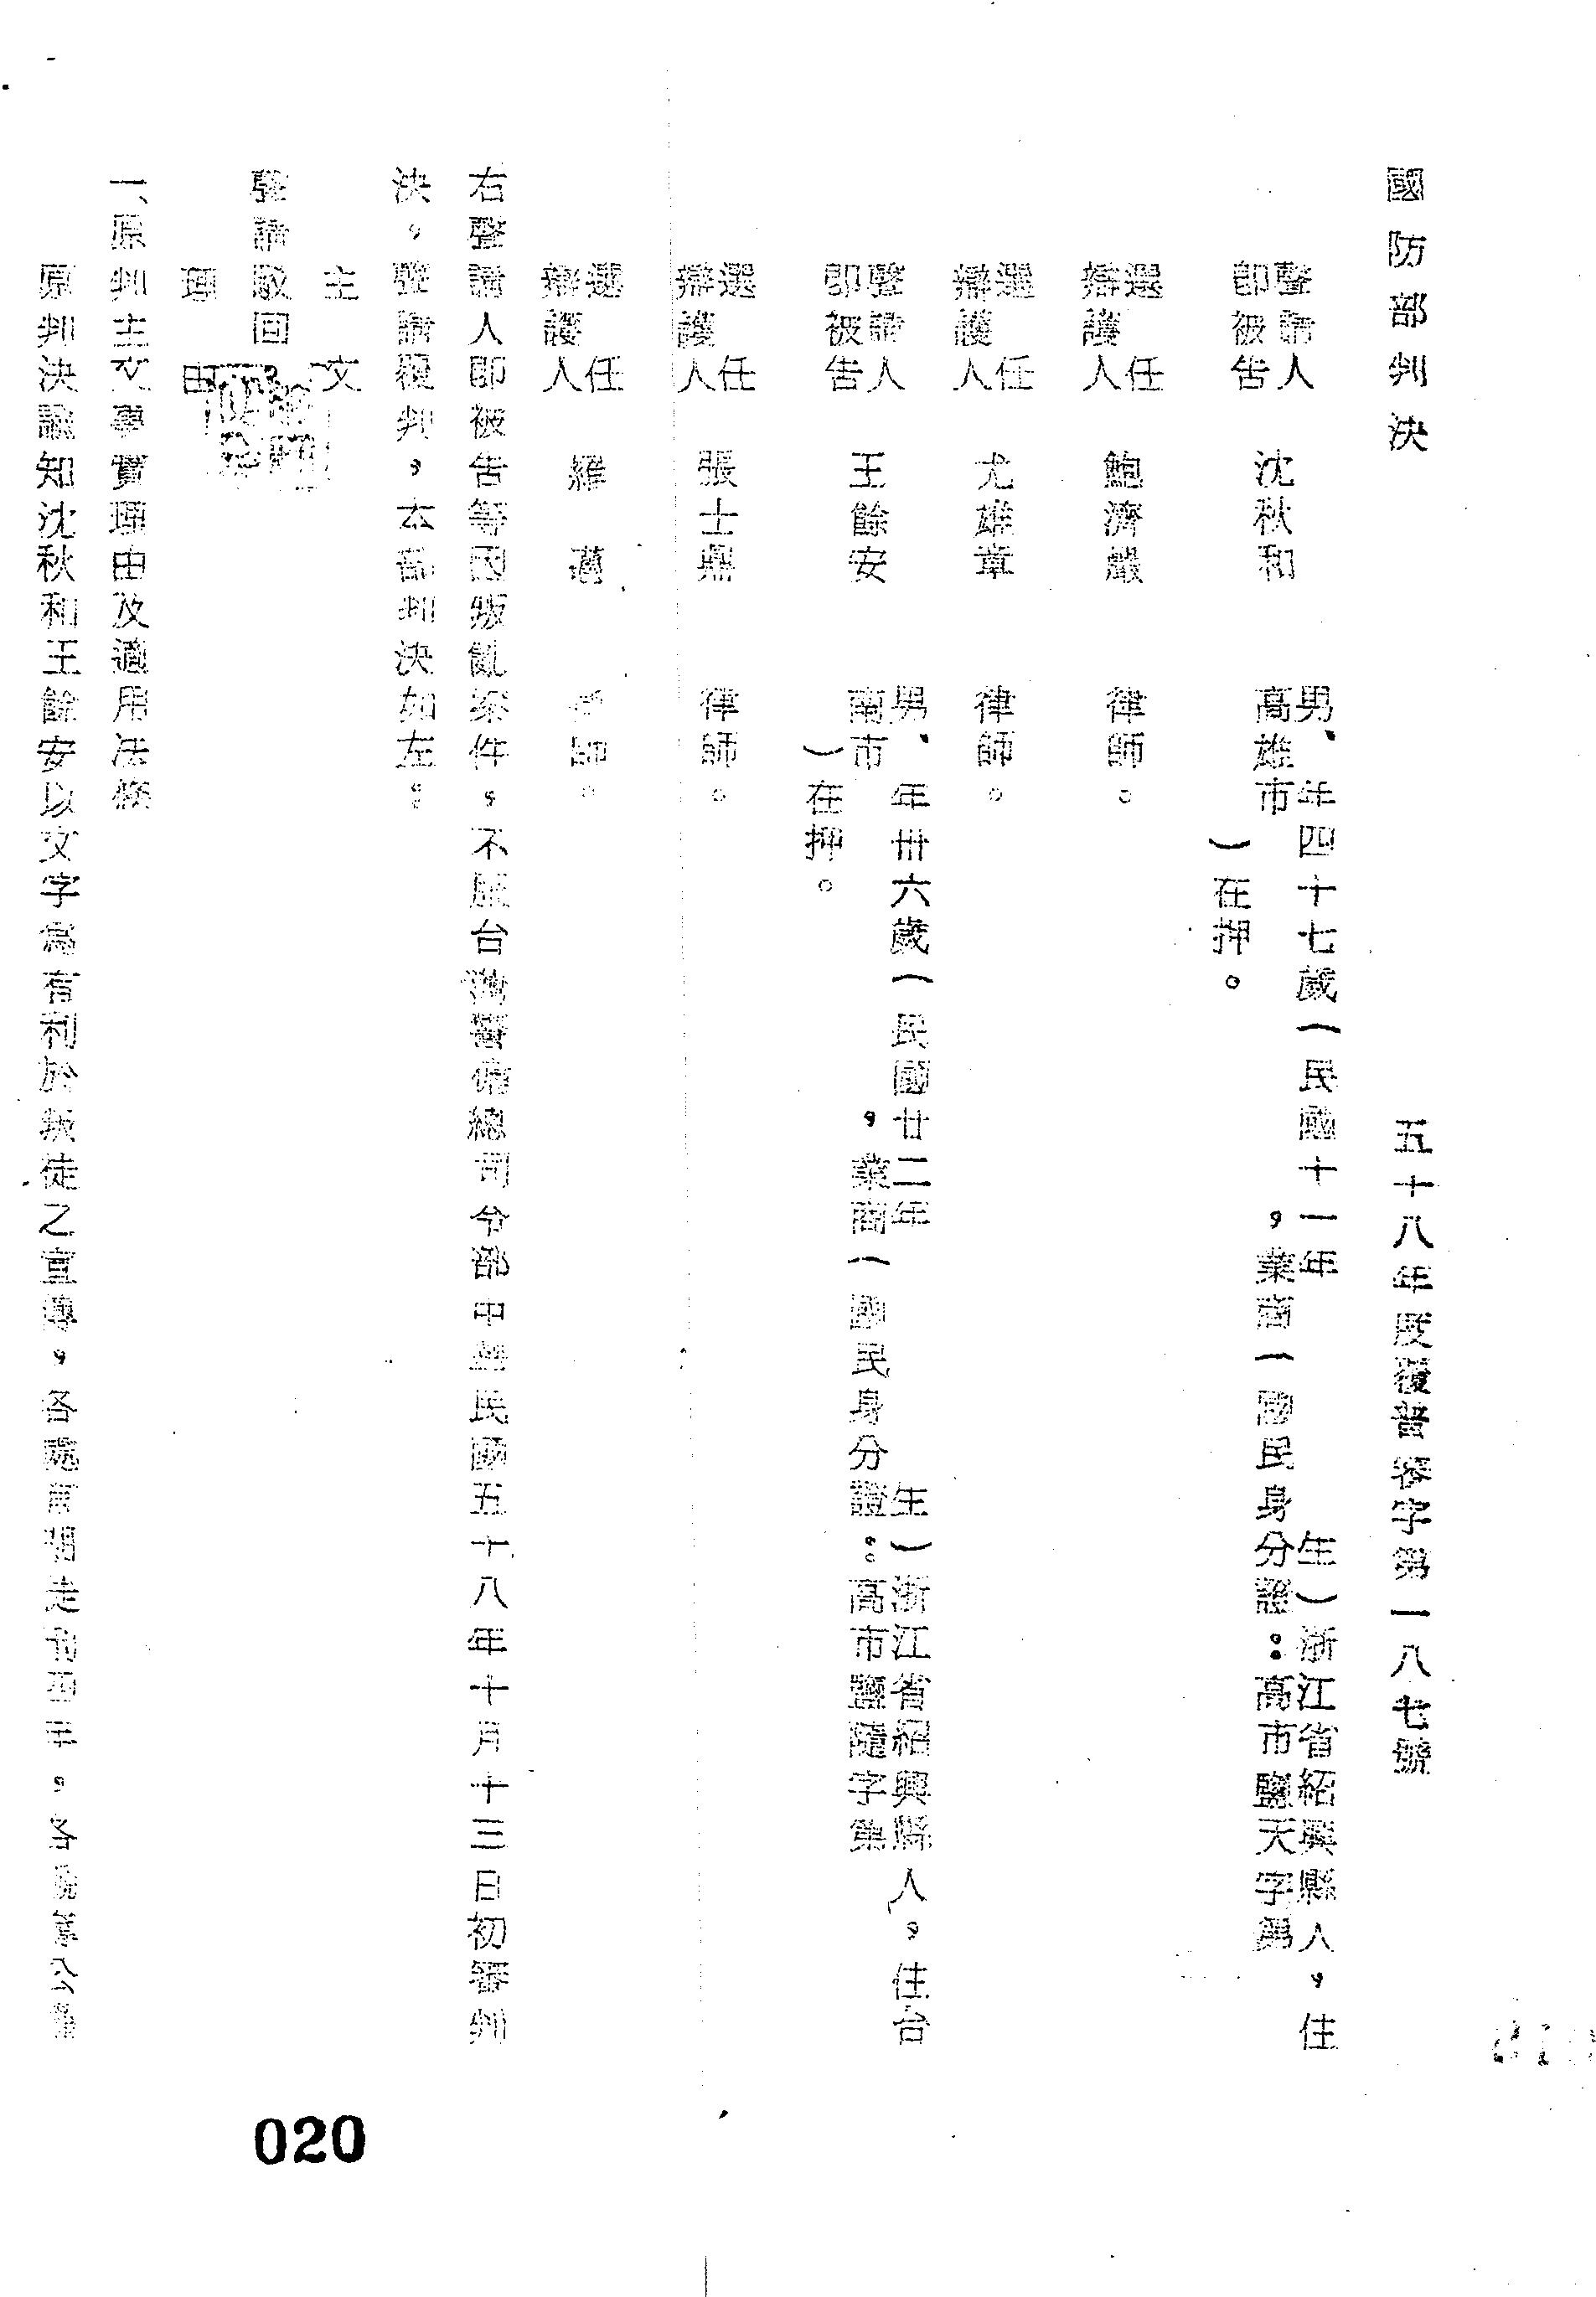 國防部判決
五十八年度覆普審字第一八七號
聲請人
即被告
沈秋和
男、年四十七歲(民國十一年 生)浙江省紹興縣人,住
高雄市 ,業商(國民身分證:高市鹽天字第
)在押。
選任
辯護人
鮑濟嚴 律師。
選任
辯護人
尤雄章 律師。
聲請人
即被告
王餘安
男、年卅六歲(民國廿二年 生)浙江省紹興縣人,住台
南市 ,業商(國民身分證:高市鹽隨字第
)在押。
選任
辯護人
張士鼎 律師。
選任
辯護人
羅 律師。
右聲請人即被告等因叛亂案件,不服台灣警備總司令部中華民國五十八年十月十三日初審判
決,聲請覆判,本部判決如左:
主 文
聲請駁回
理 由
一、原判主文事實理由及適用法條
原判決諭知沈秋和王餘安以文字為有利於叛徒之宣傳,各處有期徒刑 年,各褫奪公權
020